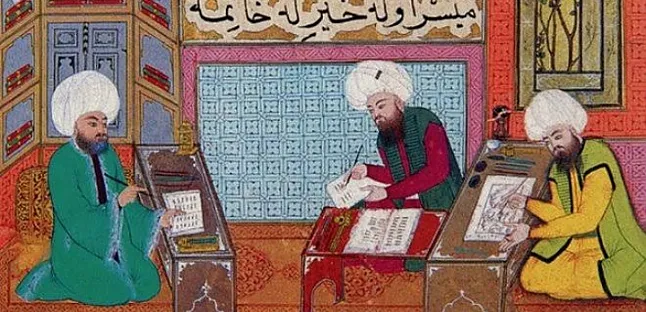 ميسر اوله خير له خاتمه